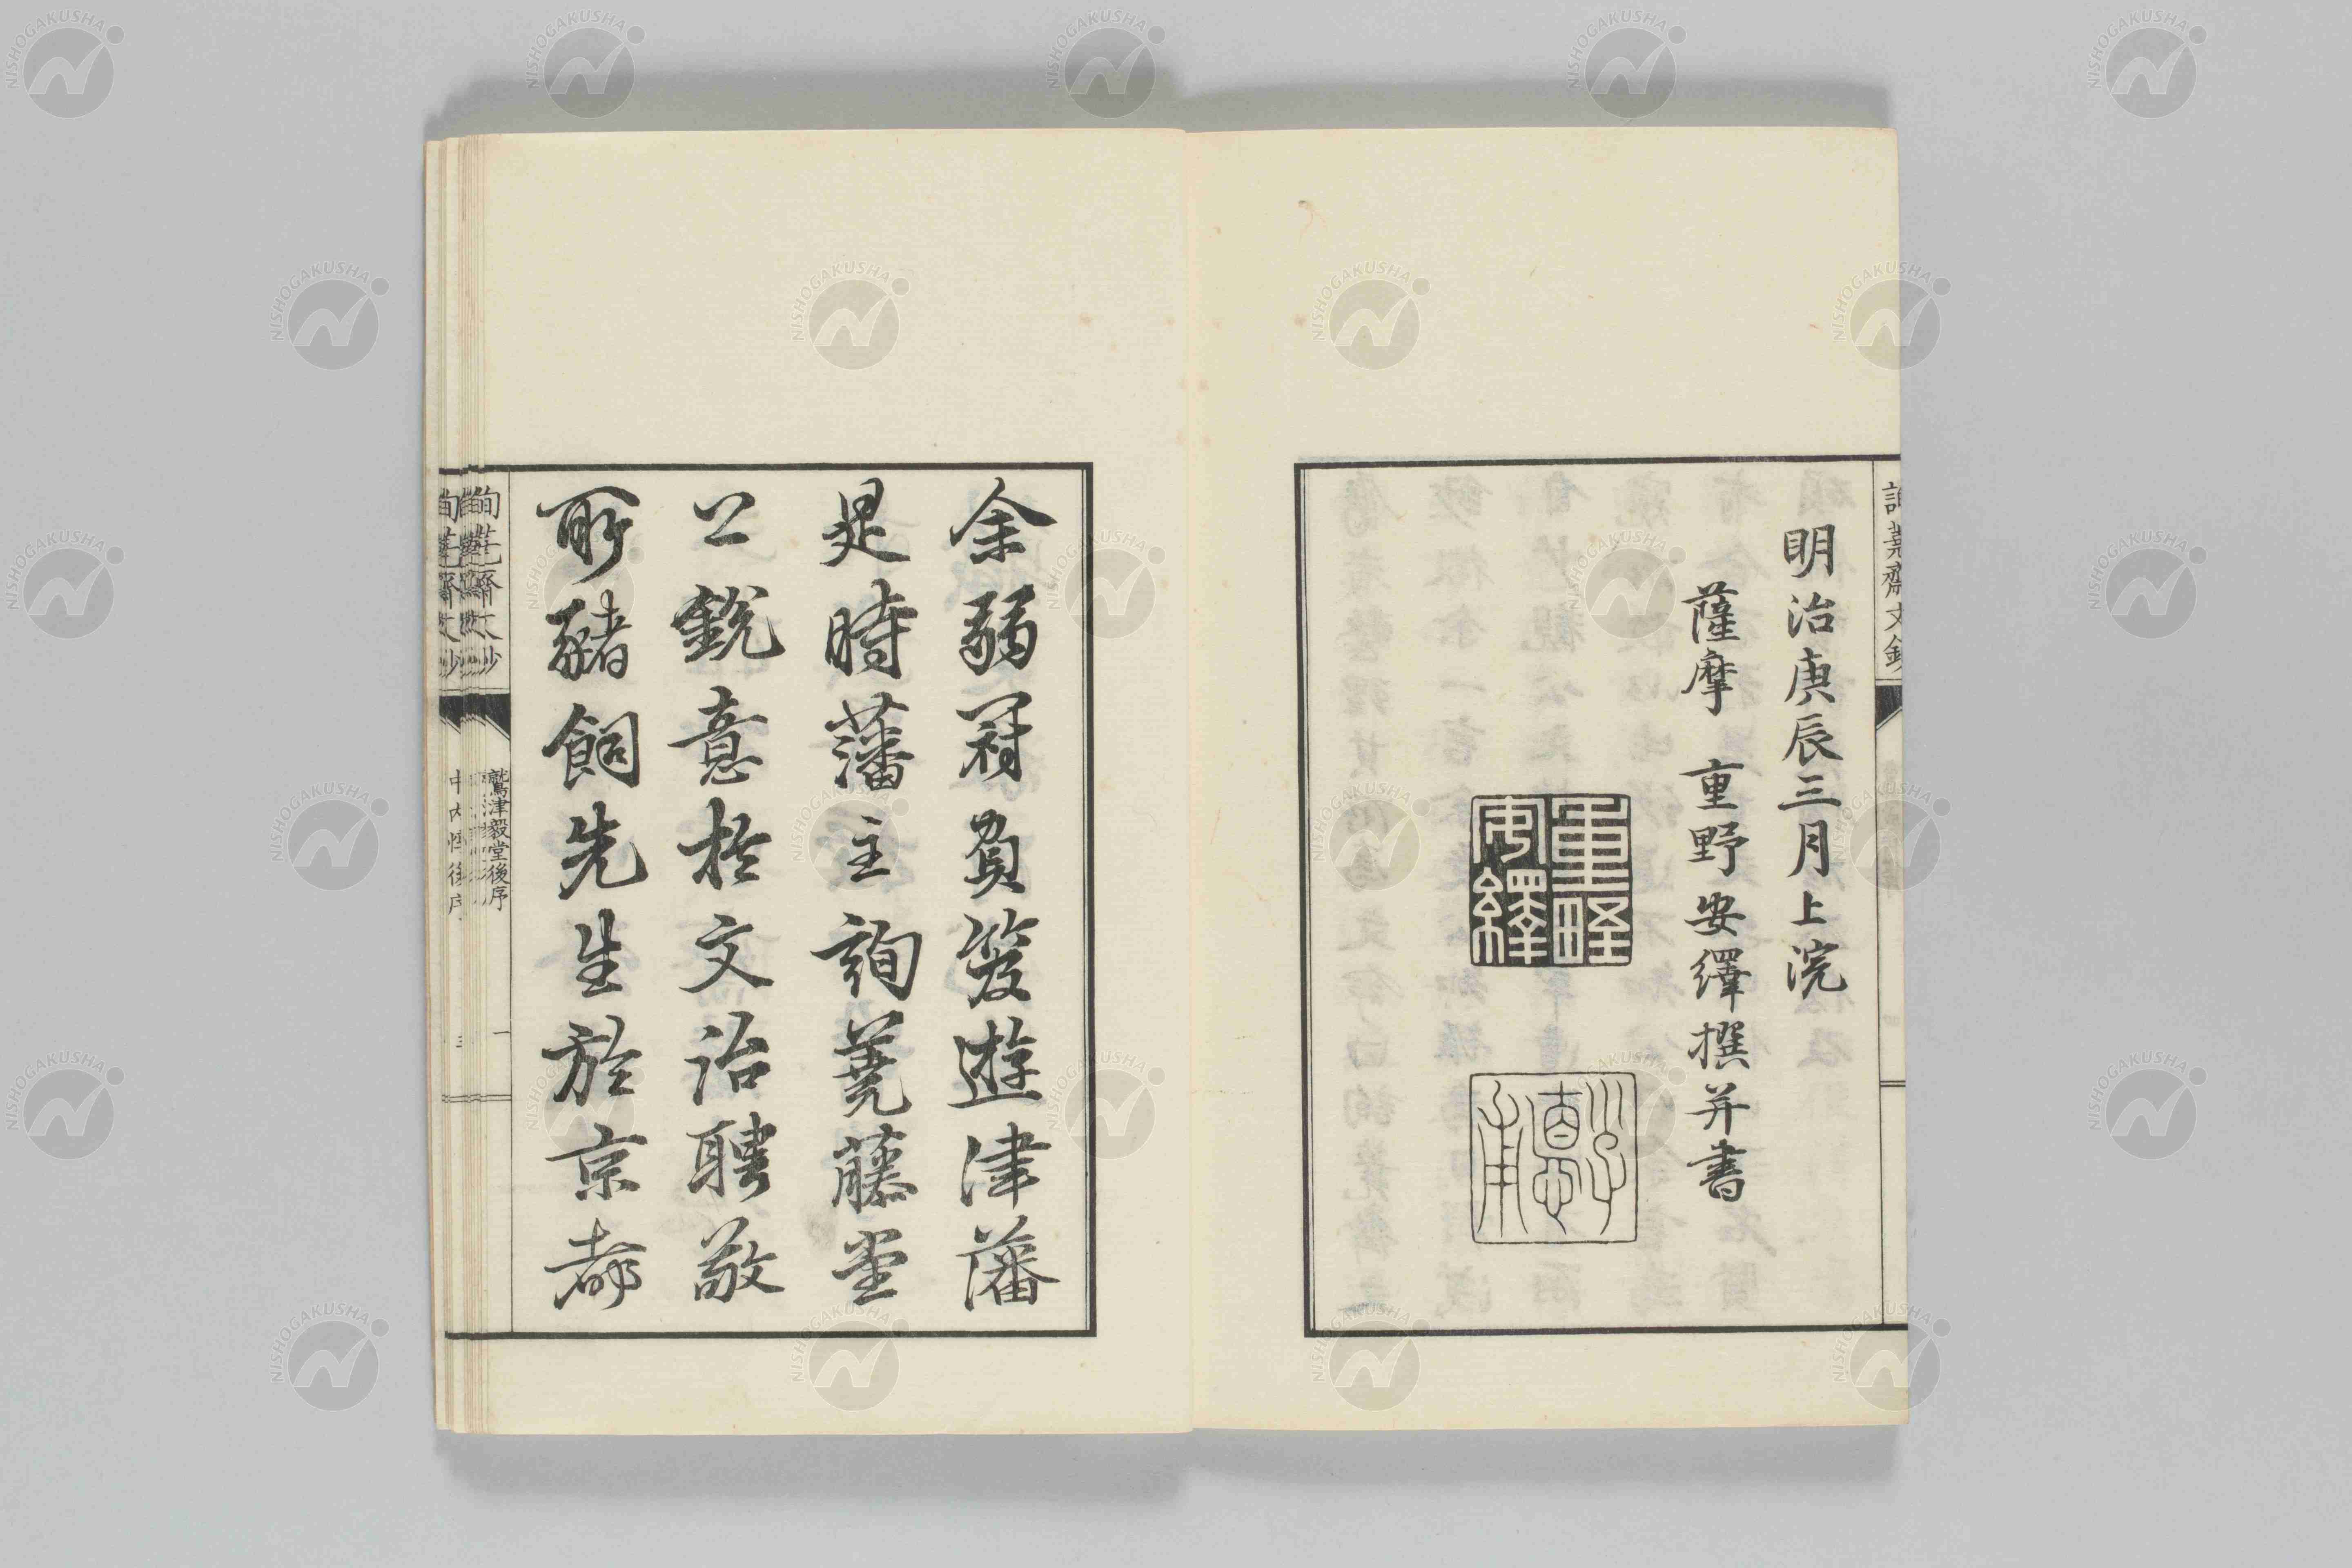 明治庚辰三月上浣
薩摩 重野安繹撰并書
重野安繹
余弱冠負笈遊津藩
是時藩主詢蕘藤堂
公銳意於文治聘敬
所豬飼先生於京都
鷲津毅堂後序
一
NISHOGAKUSHA